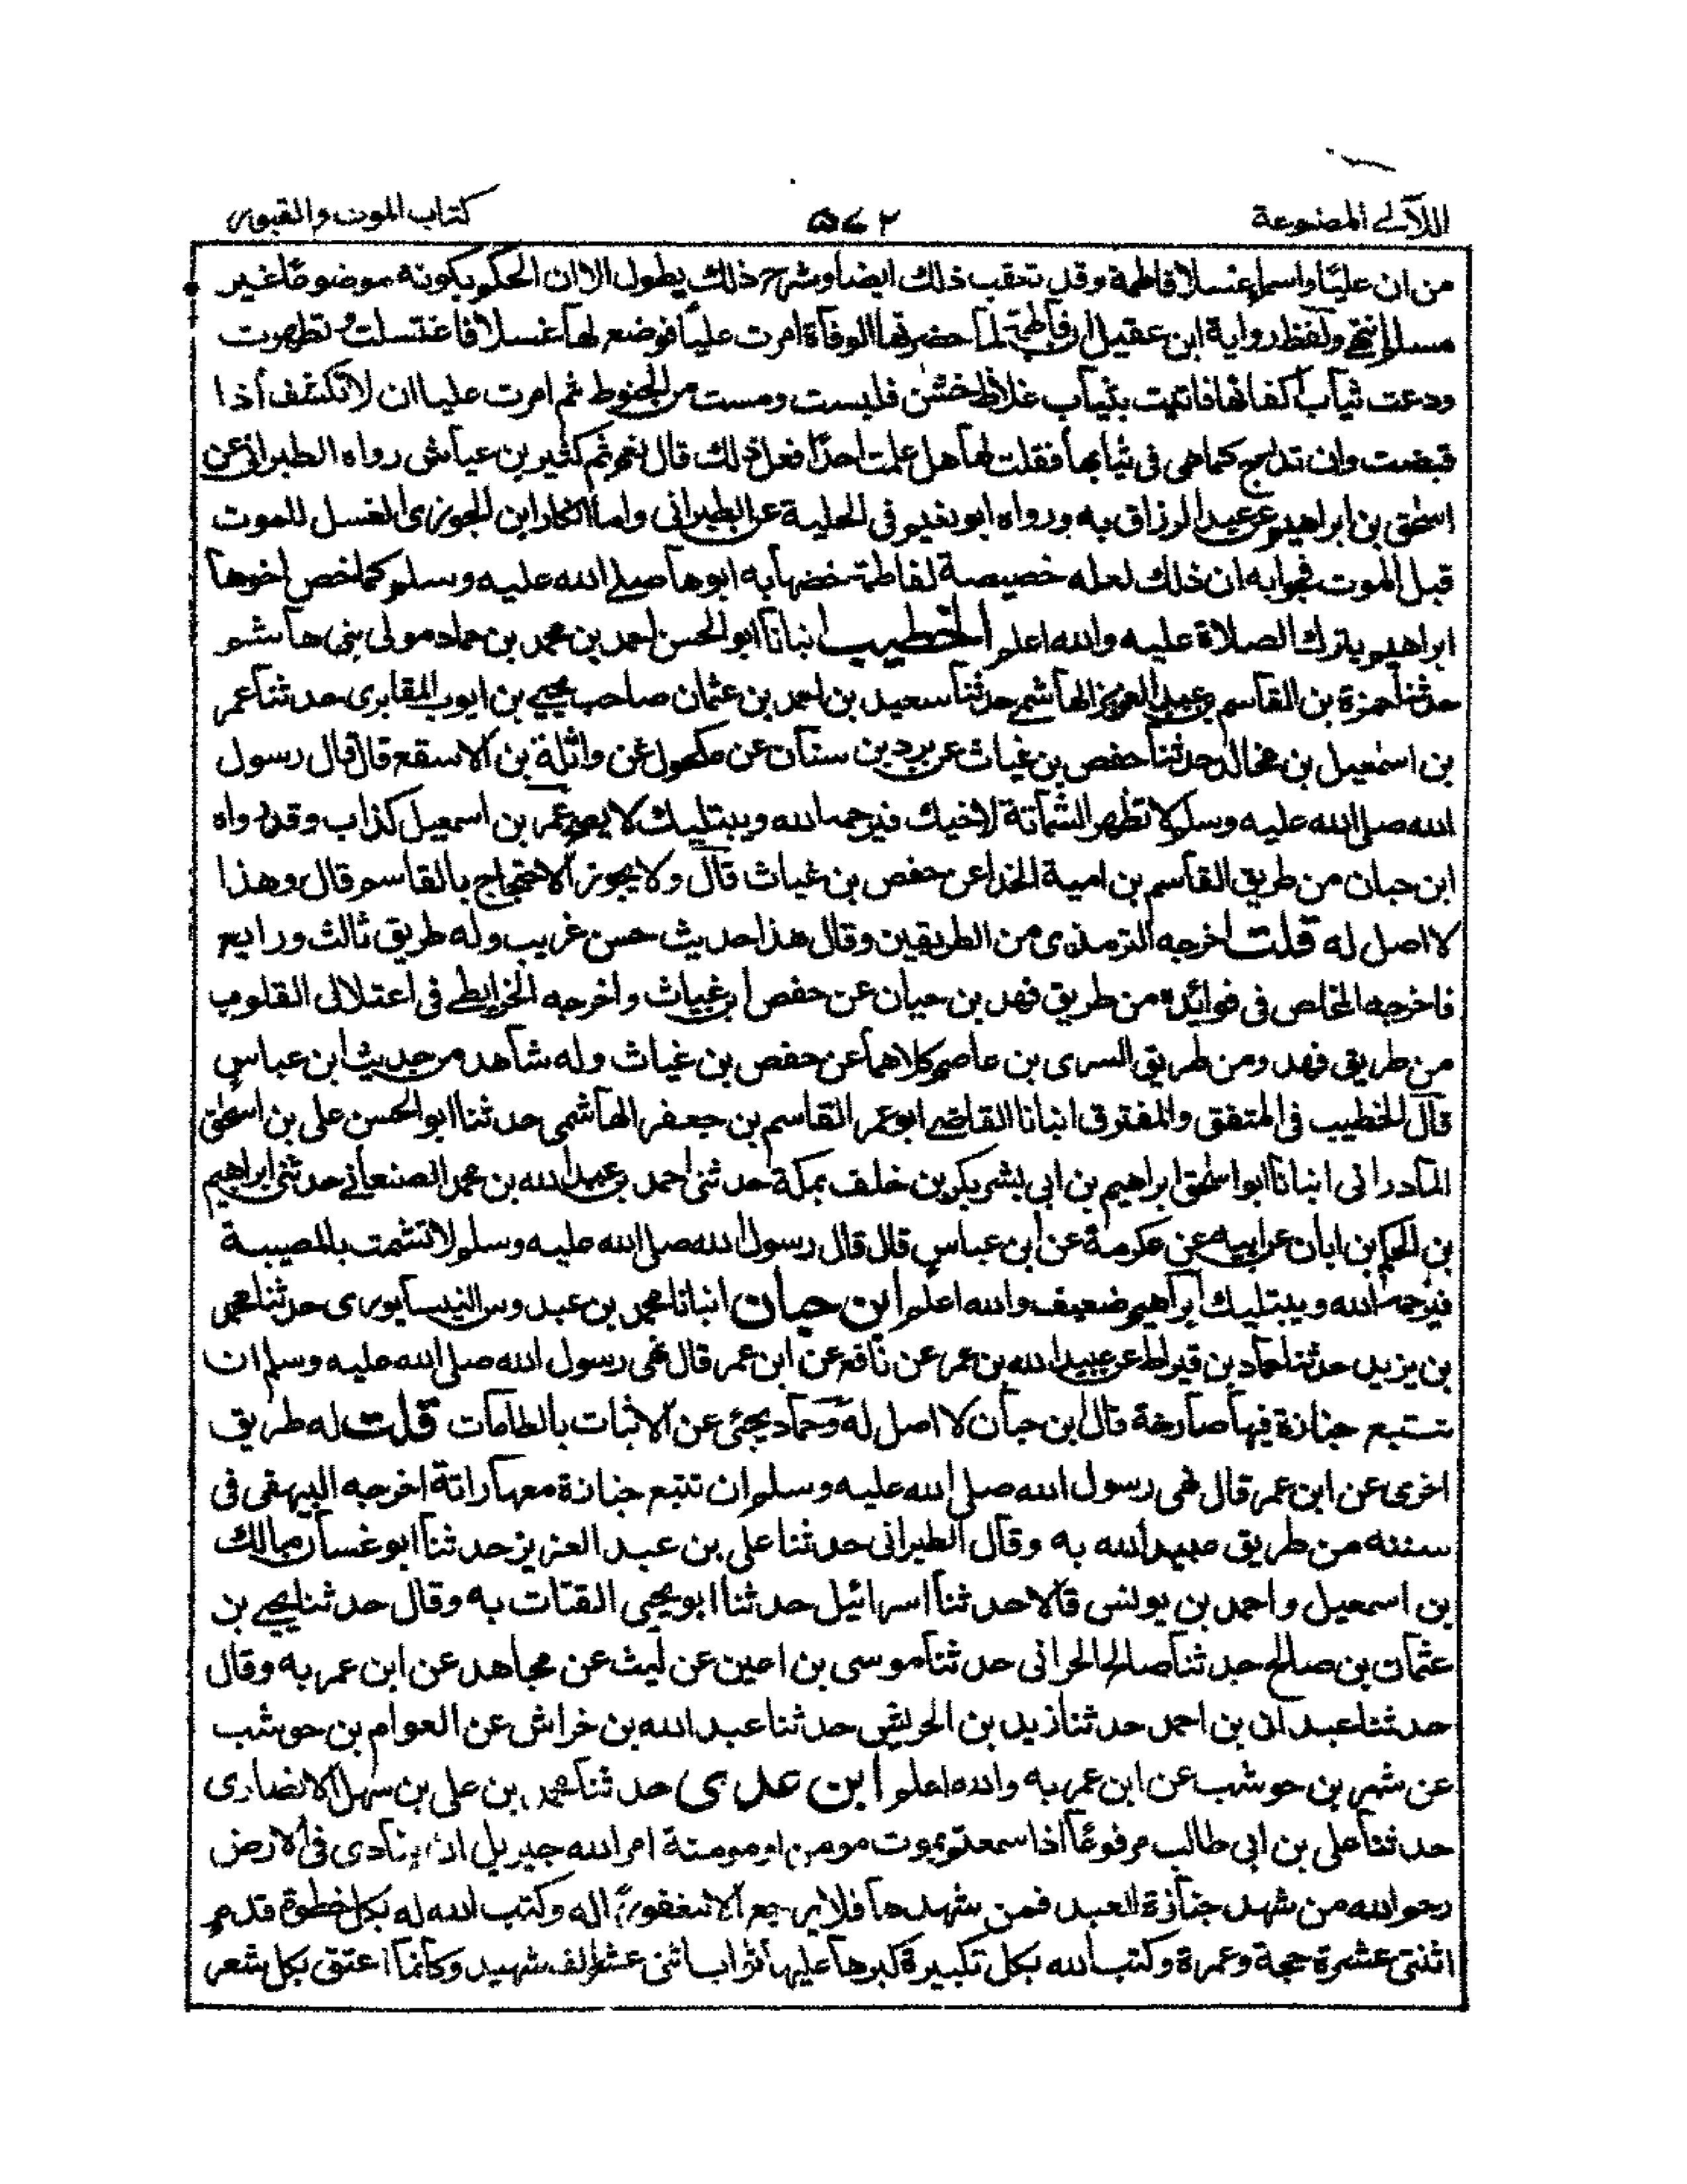 اللآلى المصنوعة
كتاب الموت والقبور
من ان عليا واسماء غسلا فاطمة وقد تعقب ذلك ايضا وشرح ذلك يطول الا ان الحكم بكونه موضوعا غير
مسلم انتهى ولفظ رواية ابن عقيل ان فاطمة لما حضرتها الوفاة امرت عليا فوضع لها غسلا فاغتسلت وتطهرت
ودعت ثياب اكفانها فاتيت بثياب غلاظ خشن فلبست ومست من الحنوط ثم امرت عليا ان لا تكشف اذا
قبضت وان تدرج كما هى فى ثيابها فقلت لها هل علمت احدا فعل ذلك قال نعم كثير بن عياش رواه الطبرانى عن
اسحق بن ابراهيم عن عبد الرزاق به ورواه ابو نعيم فى الحلية عن الطبرانى واما انكار ابن الجوزى الغسل للموت
قبل الموت فجوابه ان ذلك لعله خصيصة لفاطمة خصها به ابوها صلى الله عليه وسلم كما خص اخوها
ابراهيم بترك الصلاة عليه والله اعلم الخطيب انبانا ابو الحسن احمد بن محمد بن حماد مولى بنى هاشم
حدثنا حمزة بن القاسم بن عبد العزيز الهاشمى حدثنا سعيد بن احمد بن عثمان صاحب يحيى بن ايوب المقابرى حدثنا عمر
بن اسمعيل بن مجالد حدثنا حفص بن غياث عن برد بن سنان عن مكحول عن واثلة بن الاسقع قال قال رسول
الله صلى الله عليه وسلم لا تظهر الشماتة لاخيك فيرحمه الله ويبتليك لا يصح عمر بن اسمعيل كذاب وقد رواه
ابن حبان من طريق القاسم بن امية الحذا عن حفص بن غياث قال ولا يجوز الاحتجاج بالقاسم قال وهذا
لا اصل له قلت اخرجه الترمذى من الطريقين وقال هذا حديث حسن غريب وله طريق ثالث ورابع
فاخرجه المخلص فى فوائده من طريق فهد بن حيان عن حفص ابن غياث واخرجه الخرايطى فى اعتلال القلوب
من طريق فهد ومن طريق السرى بن عاصم كلاهما عن حفص بن غياث وله شاهد من حديث ابن عباس
قال الخطيب فى المتفق والمفترق انبانا القاضى ابو عمر القاسم بن جعفر الهاشمى حدثنا ابو الحسن على بن اسحق
المادرانى انبانا ابو اسحق ابراهيم بن ابى بشر بكر بن خلف بمكة حدثنى احمد بن عبد الله بن عمر الصنعانى حدثنى ابراهيم
بن الحكم بن ابان عن ابيه عن عكرمة عن ابن عباس قال قال رسول الله صلى الله عليه وسلم لا تشمت بالمصيبة
فيرحمه الله ويبتليك ابراهيم ضعيف والله اعلم ابن حبان انبانا محمد بن عبدوس النيسابورى حدثنا محمد
بن يزيد حدثنا حماد بن قيراط عن عبيد الله بن عمر عن نافع عن ابن عمر قال نهى رسول الله صلى الله عليه وسلم ان
تستتبع جنازة فيها صارخة قال ابن حبان لا اصل له وحماد يجئى عن الاثبات بالطامات قلت له طريق
اخرى عن ابن عمر قال نهى رسول الله صلى الله عليه وسلم ان تتبع جنازة معها راتة اخرجه البيهقى فى
سننه من طريق عبيد الله به وقال الطبرانى حدثنا على بن عبد العزيز حدثنا ابو غسان مالك
بن اسمعيل واحمد بن يونس قالا حدثنا اسرائيل حدثنا ابو يحيى القتات به وقال حدثنا يحيى بن
عثمان بن صالح حدثنا صالح الحرانى حدثنا موسى بن اعين عن ليث عن مجاهد عن ابن عمر به وقال
حدثنا عبدان بن احمد حدثنا زيد بن الحريش حدثنا عبد الله بن خراش عن العوام بن حوشب
عن شهر بن حوشب عن ابن عمر به والله اعلم ابن عدى حدثنا محمد بن على بن سهل الانصارى
حدثنا على بن ابى طالب مرفوعا اذا سمعتم بموت مومن او مومنة امر الله جبريل ان ينادى فى الارض
رحم الله من شهد جنازة العبد فمن شهدها فلا يرجع الا مغفورا له وكتب الله له بكل خطوة قدم
اثنتى عشرة حجة وعمرة وكتب الله بكل تكبيرة كبرها عليها ثواب اثنى عشر الف شهيد وكانما اعتق بكل شعر